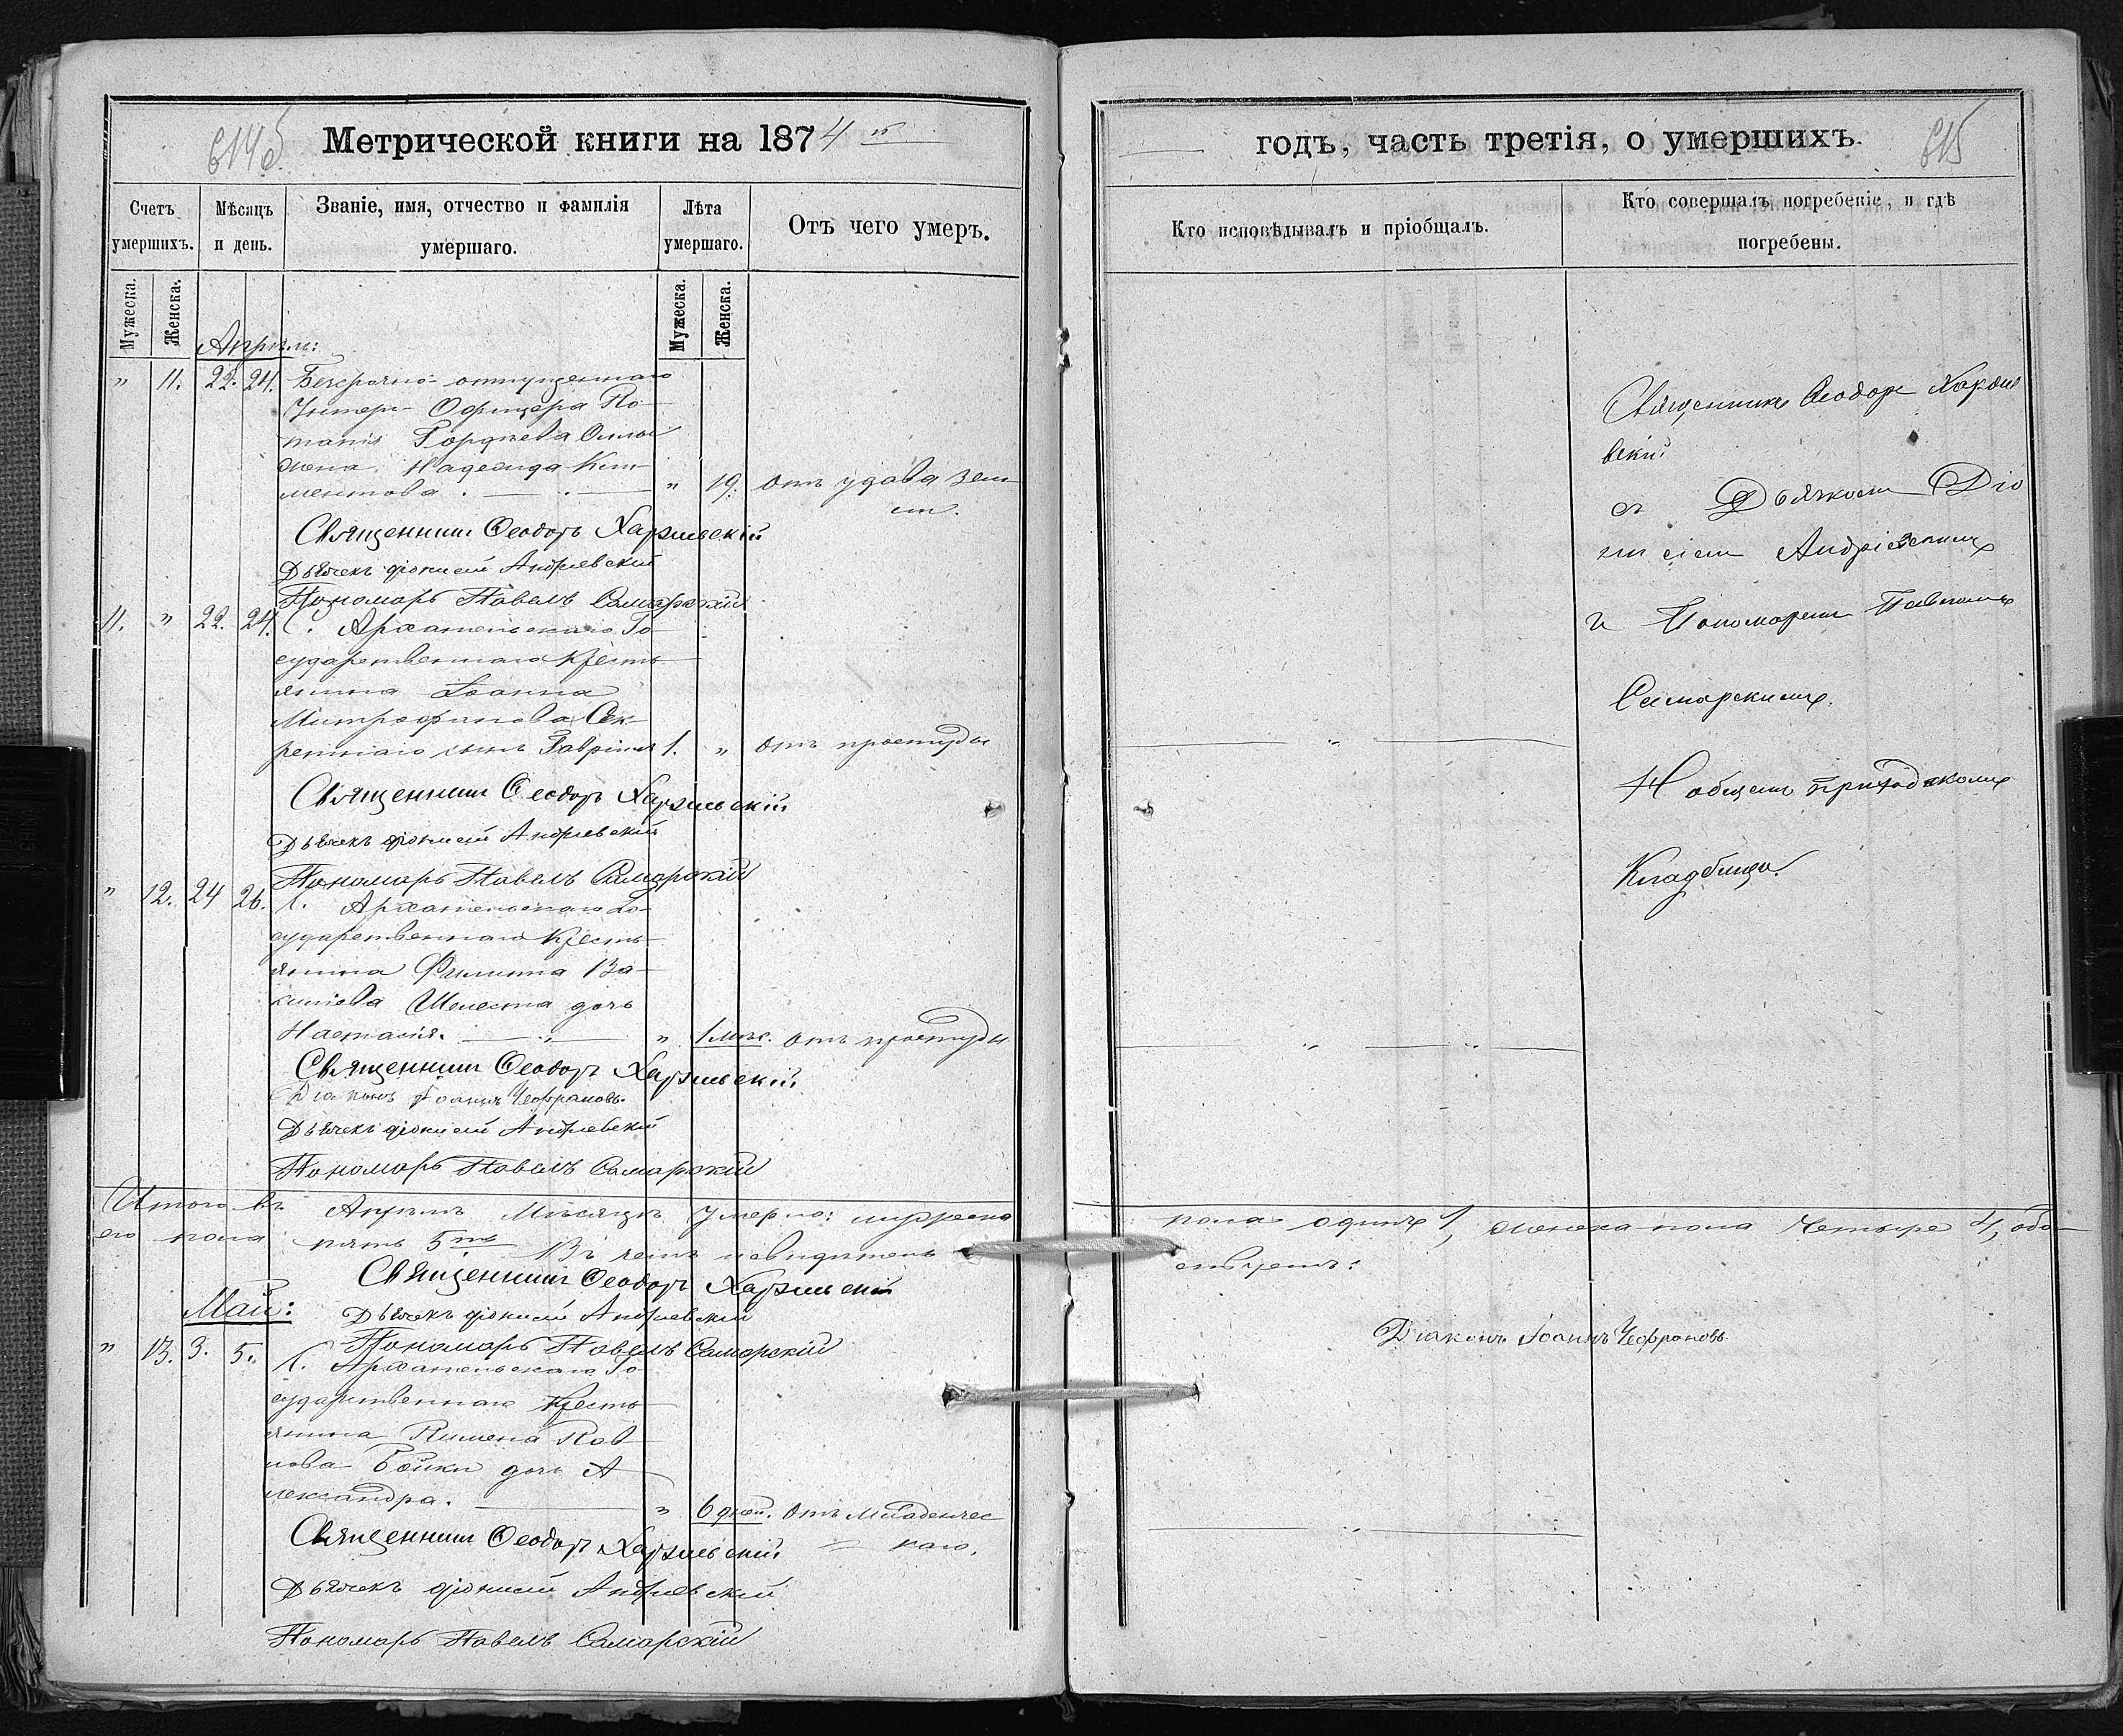 614об
Метрической книги на 1874й
Счетъ умершихъ.
Мѣсяцъ и день.
Званіе, имя, отчество и фамилія умершаго.
Лѣта умершаго.
Отъ чего умеръ.
Мужеска.
Женска.
Мужеска.
Женска.
Апрѣль:
" 11. 22. 24. Безсрочно-отпущеннаго
Унтеръ-Офицера По-
Гордѣева
жена Надежда Кли-
ментова. " 19. отъ удава
Священникъ Ѳеодоръ
Дьячекъ Діонисій Андріевскій
Пономарь Павелъ Самарскій
11. " 22. 24. С. Архангельскаго Го-
сударственнаго Кресть-
янина Іоанна
Митрофанова Сек-
сынъ Гавріилъ 1. " отъ простуды
Священникъ Ѳеодоръ
Дьячекъ Діонисій Андріевскій
Пономарь Павелъ Самарскій
" 12. 24 26. С. Архангельскаго Го-
сударственнаго Кресть-
янина Филиппа Ва-
силіева Шелеста дочь
Настасія. " 1 мѣс. отъ простуды
Священникъ Ѳеодоръ
Діаконъ Іоаннъ Чефрановъ.
Дьячекъ Діонисій Андріевскій
Пономарь Павелъ Самарскій
Итого въ Апрѣлѣ Мѣсяцѣ умерло: мужеска
го пола пять 5ть Въ чемъ и свидѣтель
Священникъ Ѳеодоръ
Май:
Дьячекъ Діонисій Андріевскій
Пономарь Павелъ Самарскій
" 13. 3. 5. С. Архангельскаго Го-
сударственнаго Кресть-
янина Пимена
Бойки дочь А-
лександра. " 6 дней. отъ младенчес
каго.
Священникъ Ѳеодоръ
Дьячекъ Діонисій Андріевскій
Пономарь Павелъ Самарскій
годъ, часть третія, о умершихъ.
615
Кто исповѣдывалъ и пріобщалъ.
Кто совершалъ погребеніе, и гдѣ
погребены.
Священникъ Ѳеодоръ
вскій
съ Дьячкомъ Діо
нисіемъ Андріевскимъ
и Пономаремъ Павломъ
Самарскимъ.
На общемъ приходскомъ
Кладбищѣ.
пола одинъ 1, женска пола четыре 4, обо-
ствуемъ:
Діаконъ Іоаннъ Чефрановъ.